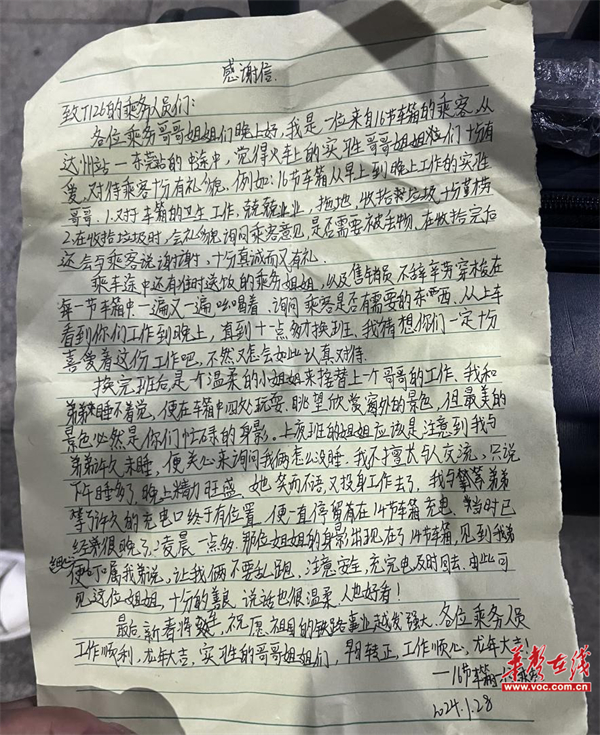 感谢信
致T126的乘务人员们:
各位乘务哥哥姐姐们晚上好,我是一位来自16节车箱的乘客,从
达州站—东莞站的中途中,觉得火车上的实习生哥哥姐姐们十份有
爱,对待乘客十份有礼貌,例如:16节车箱从早上到晚上工作的实习生
哥哥.1.对于车箱的卫生工作,兢兢业业,拖地,收拾垃圾十份勤劳
2.在收拾垃圾时,会礼貌询问乘客意见,是否需要被丢物,在收拾完后
还会与乘客说谢谢,十份真诚而又有礼.
乘车途中还有准时送饭的乘务姐姐,以及售销员不辞辛劳穿梭在
每一节车箱中.一遍又一遍吆喝着.询问乘客是否有需要的东西,从上车
看到你们工作到晚上,直到十点多才换班.我猜想你们一定十份
喜爱着这份工作吧,不然又怎会如此认真对待.
换完班后是个温柔的小姐姐来接替上一个哥哥的工作.我和
弟弟睡不着觉,便在车箱中四处玩耍.眺望欣赏窗外的景色,但最美的
景色必然是你们忙碌的身影.上夜班的姐姐应该是注意到我与
弟弟许久未睡,便关心来询问我俩怎么没睡.我不擅长与人交流,只说
下午睡多了,晚上精力旺盛.她笑而不语,又投身工作去了,我与弟弟
等了许久的充电口终于有位置,便一直停留在14节车箱充电.当时已
经很晚了,凌晨一点多.那位姐姐的身影出现在了14节车箱,见到我弟
便叮嘱我弟说,让我俩不要乱跑,注意安全,充完电及时回去.由此可
见这位姐姐,十分的善良,说话也很温柔,人也好看!
最后,新春将至,祝愿祖国的铁路事业越发强大.各位乘务人员
工作顺利,龙年大吉.实习生的哥哥姐姐们,早日转正,工作顺心,龙年大吉!
—16节车箱一乘客
2024.1.28
华声在线
www.voc.com.cn